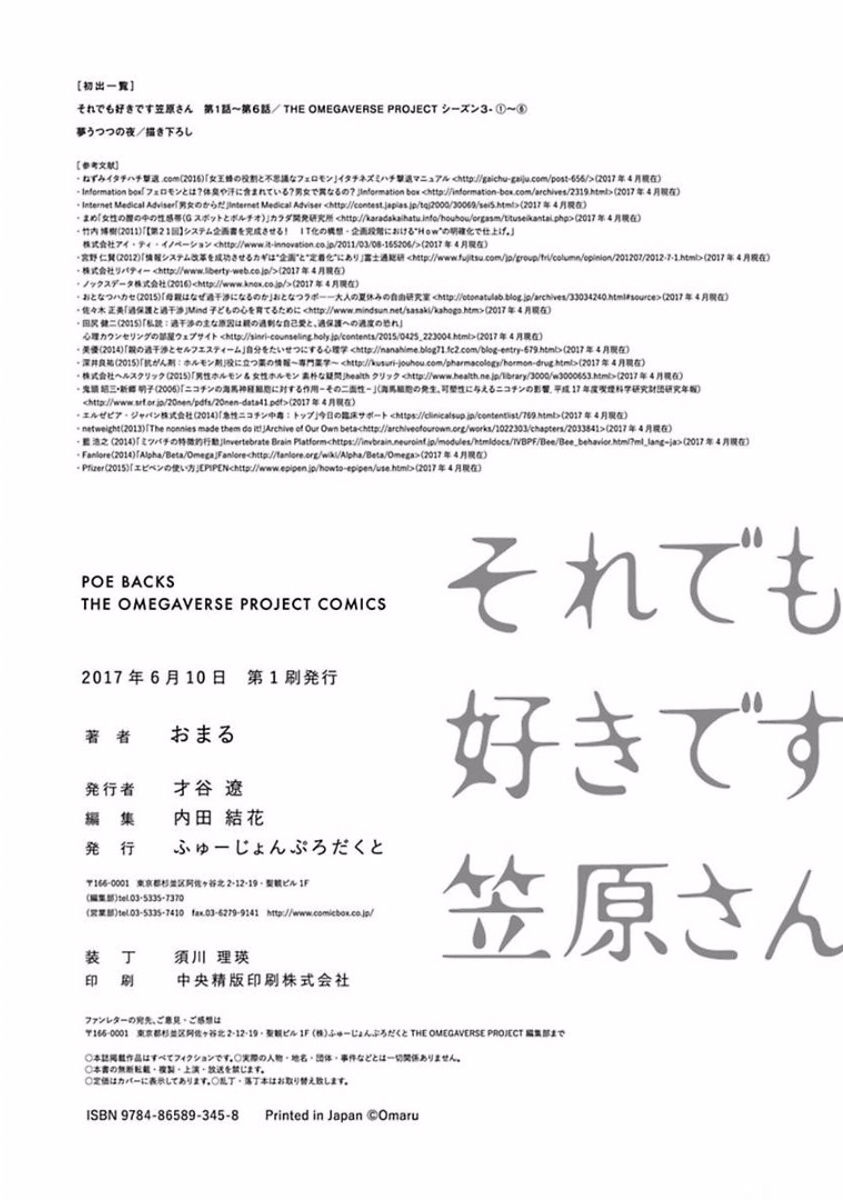 [初出一覧]
それでも好きです笠原さん 第1話～第6話／THE OMEGAVERSE PROJECT シーズン3- ①～⑥
夢うつつの夜／描き下ろし
[参考文献]
・ねずみイタチハチ撃退.com(2016)「女王蜂の役割と不思議なフェロモン」イタチネズミハチ撃退マニュアル<http://gaichu-gaiju.com/post-656/>(2017年4月現在)
・Information box「フェロモンとは?体臭や汗に含まれている?男女で異なるの?」Information box <http://information-box.com/archives/2319.html>(2017年4月現在)
・Internet Medical Adviser「男女のからだ」Internet Medical Adviser <http://contest.japias.jp/tqj2000/30069/sei5.html>(2017年4月現在)
・まめ「女性の膣の中の性感帯(Gスポットとポルチオ)」カラダ開発研究所 <http://karadakaihatu.info/houhou/orgasm/tituseikantai.php>(2017年4月現在)
・竹内 博樹(2011)「【第21回】システム企画書を完成させる! IT化の構想・企画段階における“How”の明確化で仕上げ。」
株式会社アイ・ティ・イノベーション<http://www.it-innovation.co.jp/2011/03/08-165206/>(2017年4月現在)
・宮野 仁賢(2012)「情報システム改革を成功させるカギは“企画”と“定着化”にあり」富士通総研 <http://www.fujitsu.com/jp/group/fri/column/opinion/201207/2012-7-1.html>(2017年4月現在)
・株式会社リバティー<http://www.liberty-web.co.jp/>(2017年4月現在)
・ノックスデータ株式会社(2016)<http://www.knox.co.jp/>(2017年4月現在)
・おとなつハカセ(2015)「母親はなぜ過干渉になるのか」おとなつラボ――大人の夏休みの自由研究室 <http://otonatulab.blog.jp/archives/33034240.html#source>(2017年4月現在)
・佐々木 正美「過保護と過干渉」Mind 子どもの心を育てるために <http://www.mindsun.net/sasaki/kahogo.htm>(2017年4月現在)
・田尻 健二(2015)「私説：過干渉の主な原因は親の過剰な自己愛と、過保護への過度の恐れ」
心理カウンセリングの部屋ウェブサイト <http://sinri-counseling.holy.jp/contents/2015/0425_223004.html>(2017年4月現在)
・美優(2014)「親の過干渉とセルフエスティーム」自分をたいせつにする心理学 <http://nanahime.blog71.fc2.com/blog-entry-679.html>(2017年4月現在)
・深井良祐(2015)「抗がん剤：ホルモン剤」役に立つ薬の情報～専門薬学～ <http://kusuri-jouhou.com/pharmacology/hormon-drug.html>(2017年4月現在)
・株式会社ヘルスクリック(2015)「男性ホルモン＆女性ホルモン 素朴な疑問」healthクリック <http://www.health.ne.jp/library/3000/w3000653.html>(2017年4月現在)
・鬼頭 昭三・新郷 明子(2006)「ニコチンの海馬神経細胞に対する作用－その二面性－」(海馬細胞の発生、可塑性に与えるニコチンの影響、平成17年度喫煙科学研究財団研究年報)
<http://www.srf.or.jp/20nen/pdfs/20nen-data41.pdf>(2017年4月現在)
・エルゼビア・ジャパン株式会社(2014)「急性ニコチン中毒：トップ」今日の臨床サポート <https://clinicalsup.jp/contentlist/769.html>(2017年4月現在)
・netweight(2013)「The nonnies made them do it!」Archive of Our Own beta<http://archiveofourown.org/works/1022303/chapters/2033841>(2017年4月現在)
・藍 浩之(2014)「ミツバチの特徴的行動」Invertebrate Brain Platform<https://invbrain.neuroinf.jp/modules/htmldocs/IVBPF/Bee/Bee_behavior.html?ml_lang=ja>(2017年4月現在)
・Fanlore(2014)「Alpha/Beta/Omega」Fanlore<http://fanlore.org/wiki/Alpha/Beta/Omega>(2017年4月現在)
・Pfizer(2015)「エピペンの使い方」EPIPEN<http://www.epipen.jp/howto-epipen/use.html>(2017年4月現在)
それでも
好きです
笠原さん
POE BACKS
THE OMEGAVERSE PROJECT COMICS
2017年6月10日 第1刷発行
著者 おまる
発行者 才谷 遼
編集 内田 結花
発行 ふゅーじょんぷろだくと
〒166-0001 東京都杉並区阿佐ヶ谷北2-12-19・聖観ビル1F
(編集部)tel.03-5335-7370
(営業部)tel.03-5335-7410 fax.03-6279-9141 http://www.comicbox.co.jp/
装丁 須川 理瑛
印刷 中央精版印刷株式会社
ファンレターの宛先、ご意見・ご感想は
〒166-0001 東京都杉並区阿佐ヶ谷北2-12-19・聖観ビル1F (株)ふゅーじょんぷろだくと THE OMEGAVERSE PROJECT 編集部まで
○本誌掲載作品はすべてフィクションです。○実際の人物・地名・団体・事件などとは一切関係ありません。
○本書の無断転載・複製・上演・放送を禁じます。
○定価はカバーに表示してあります。○乱丁・落丁本はお取り替え致します。
ISBN 9784-86589-345-8 Printed in Japan ©Omaru